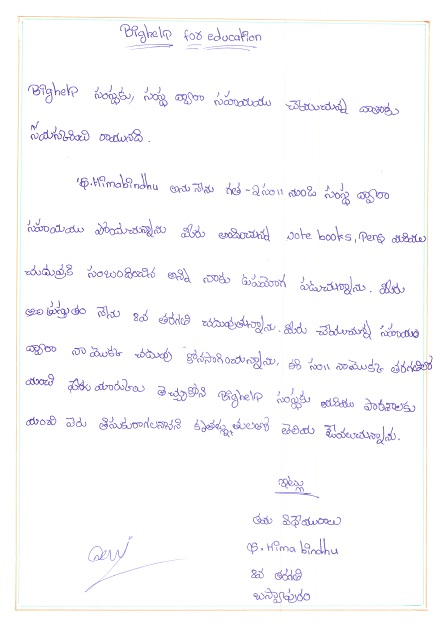 Bighelp for education
Bighelp సంస్థకు, సంస్థ ద్వారా సహాయము చేయుచున్న వారికి
వ్రాయునది.
B.Himabindhu అను నేను గత -2 సం॥ నుండి సంస్థ ద్వారా
సహాయము పొందుచున్నాను మీరు అందించిన note books, Pens మరియు
చదువుకి సంబంధించిన అన్ని నాకు ఉపయోగ పడుచున్నాను. మీరు
నేను 8వ తరగతి చదువుతున్నాను. మీరు చేయుచున్న సహాయం
ద్వారా నా యొక్క చదువు కొనసాగించున్నాను, ఈ సం॥ నా యొక్క తరగతిలో
మంచి తెచ్చుకొని Bighelp సంస్థకు మరియు పాఠశాలకు
మంచి పేరు తీసుకురాగలనని కృతజ్ఞతలతో తెలియ చేయుచున్నాను.
ఇట్లు
తమ విధేయురాలు
B.Hima bindhu
8వ తరగతి
బస్వాపురం